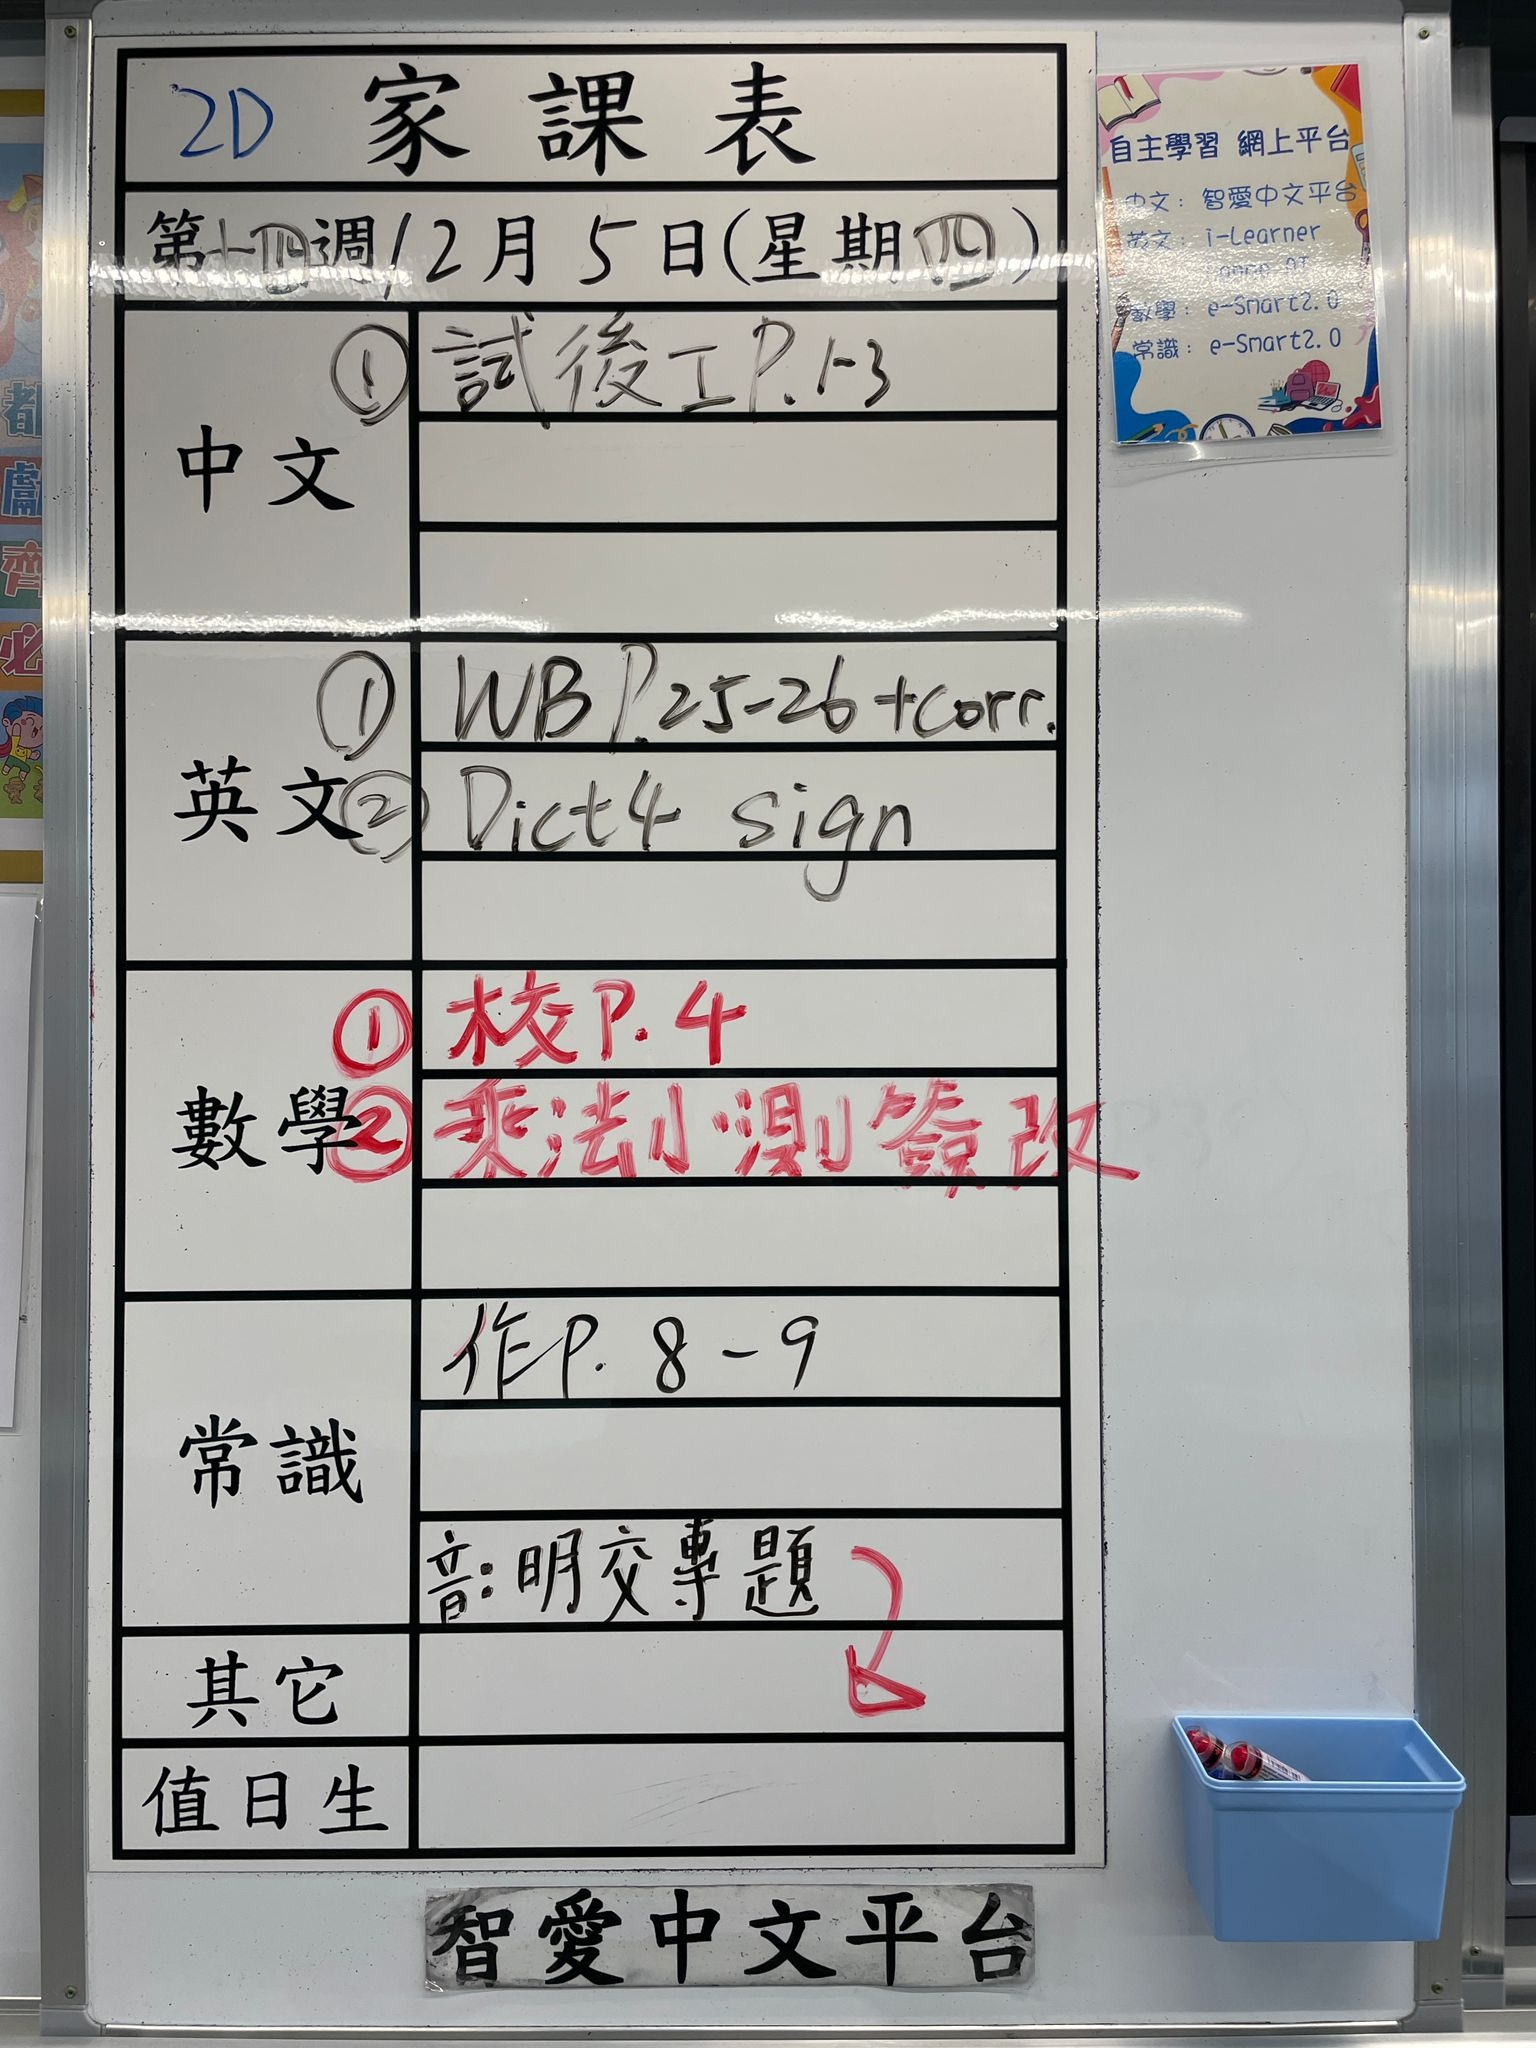 2D 家課表
第十四週12月5日(星期四)
中文
① 試後工P.1-3
英文
① WB P.25-26+corr.
② Dict4 sign
數學
① 校P.4
② 乘法小測簽改
常識
作P. 8-9
音:明交專題
其它
值日生
智愛中文平台
自主學習 網上平台
中文: 智愛中文平台
英文: i-Learner
數學: e-Smart2.0
常識: e-Smart2.0
都
處
齊
必